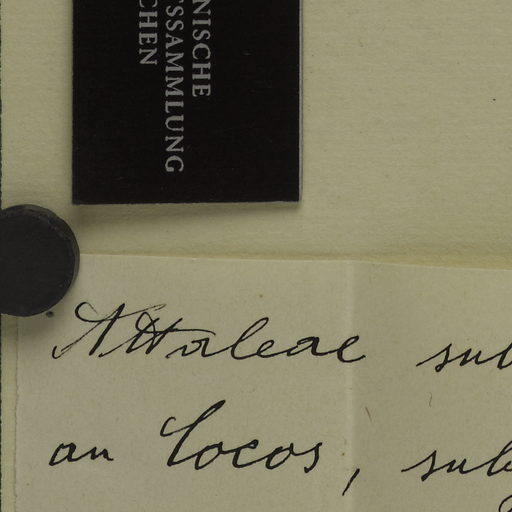 NISCHE
SSAMMLUNG
CHEN
Attaleae sub
an Cocos, sub